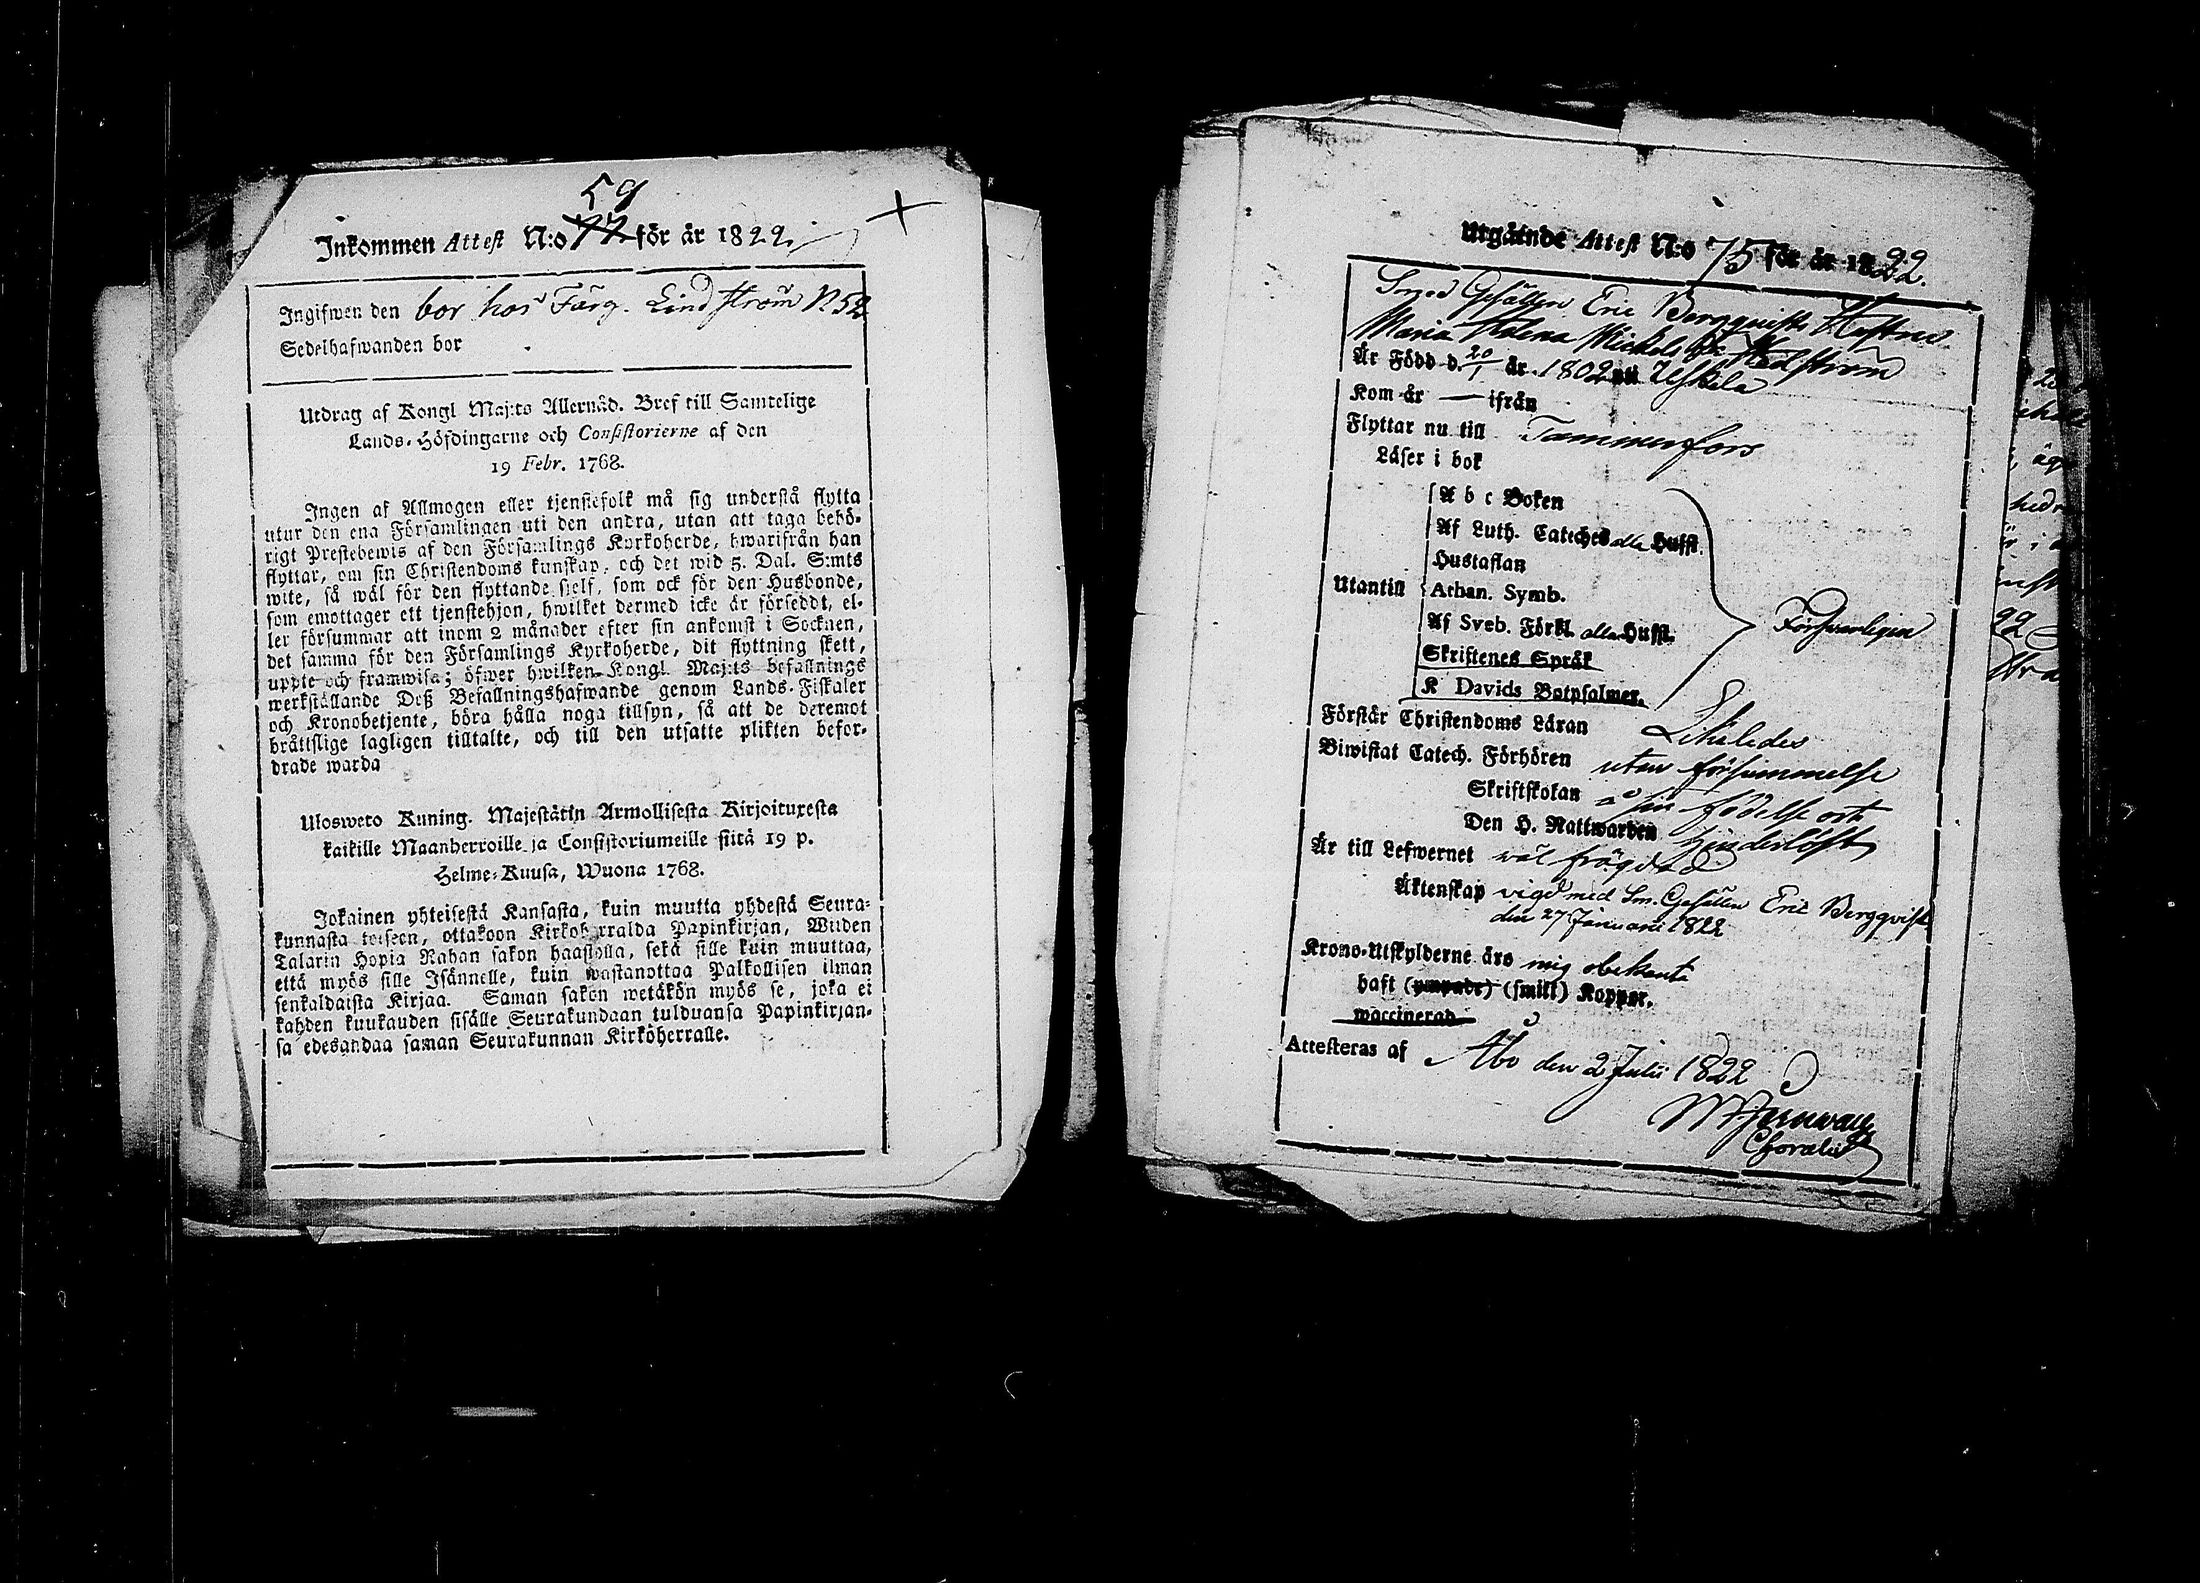 59
Inkommen Attest N:o 77 för år 1822
Ingifwen den bor hos Färg. Lindström N 52
Sedelhafwanden bor
Utdrag af Kongl Maj:ts Allernåd. Bref till Samtelige
Lands-Höfdingarne och Consistorierne af den
19 Febr. 1768.
Ingen af Allmogen eller tjenstefolk må sig understå flytta
utur den ena Församlingen uti den andra, utan att taga behö-
rigt Prestebewis af den Församlings Kyrkoherde, hwarifrån han
flyttar, om sin Christendoms kunskap, och det wid 5. Dal. S:mts
wite, så wäl för den flyttande sjelf, som ock för den Husbonde,
som emottager ett tjenstehjon, hwilket dermed icke är försedt, el-
ler försummar att inom 2 månader efter sin ankomst i Socknen,
det samma för den Församlings Kyrkoherde, dit flyttning skett,
uppte och framwisa; öfwer hwilken Kongl. Maj:ts befallnings
werkställande Deß Befallningshafwande genom Lands-Fiskaler
och Kronobetjente, böra hålla noga tillsyn, så att de deremot
bråttslige lagligen tilltalte, och till den utsatte plikten befor-
drade warda
Ulosweto Kuning. Majestätin Armollisesta Kirjoituxesta
kaikille Maanherroille ja Consistoriumeille siitä 19 p.
Helme-Kuusa, Wuona 1768.
Jokainen yhteisestä Kansasta, kuin muutta yhdestä Seura-
kunnasta toiseen, ottakoon Kirkoherralda Papinkirjan, Wiiden
Talarin Hopia Rahan sakon haastolla, sekä sille kuin muuttaa,
että myös sille Isännelle, kuin wastanottaa Palkollisen ilman
senkaldaista Kirjaa. Saman sakon wetäkön myös se, joka ei
kahden kuukauden sisälle Seurakundaan tulduansa Papinkirjan-
sa edesandaa saman Seurakunnan Kirköherralle.
Utgående Attest N:o 75 för år 1822.
Smed Gesällen Eric Bergqvists Hustru
Maria Helena Michelsdr Hedström
Är Född d. 20/1 år 1802 uti Uskela
Kom år — ifrån
Flyttar nu till Tammerfors
Läser i bok
A b c Boken
Af Luth. Cateches alla Hufst.
Hustaflan
Utantill Athan. Symb.
Af Sveb. Förkl. alla Hufst.
Skriftenes Språk
K Davids Botpsalmer.
Försvarligen
Förstår Christendoms Läran Likaledes
Biwistat Catech. Förhören utan försummelse
Skriftskolan å sin födelse ort
Den H. Nattwarden hinderlöst
Är till Lefwernet wäl frägdad
Äktenskap vigd med Sm. Gesällen Eric Bergqvist
den 27 Januari 1822
Krono-Utskylderne äro mig obekanta
haft (ympade) (smitt) Koppor.
waccinerad
Attesteras af Åbo den 2 Julii 1822